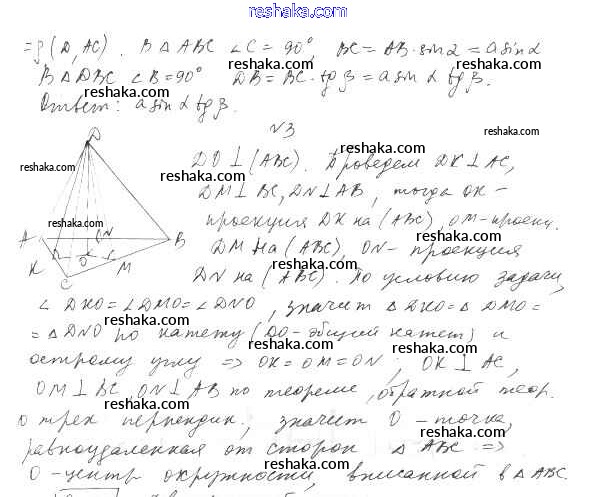 reshaka.com
= ρ(D, AC). В △ABC ∠C = 90°, BC = AB·sin α = a sin α
В △DBC ∠B = 90° DB = BC·tg β = a sin α tg β.
Ответ: a sin α tg β.
№3
DO ⊥ (ABC). Проведем DK ⊥ AC,
DM ⊥ BC, DN ⊥ AB, тогда OK –
проекция DK на (ABC), OM – проекц.
DM на (ABC), ON – проекция
DN на (ABC). По условию задачи,
∠DKO = ∠DMO = ∠DNO, значит △DKO = △DMO =
= △DNO по катету (DO – общий катет) и
острому углу ⇒ OK = OM = ON, OK ⊥ AC,
OM ⊥ BC, ON ⊥ AB по теореме, обратной теор.
о трех перпендик., значит O – точка,
равноудаленная от сторон △ABC ⇒
O – центр окружности, вписанной в △ABC.
D
A
N
B
K
O
M
C
reshaka.com
reshaka.com
reshaka.com
reshaka.com
reshaka.com
reshaka.com
reshaka.com
reshaka.com
reshaka.com
reshaka.com
reshaka.com
reshaka.com
reshaka.com
reshaka.com